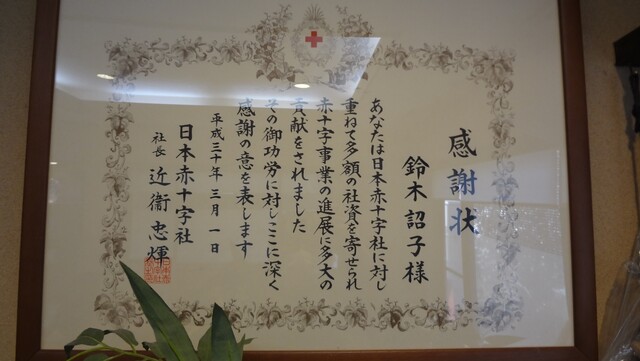 感謝状
鈴木詔子様
あなたは日本赤十字社に対し
重ねて多額の社資を寄せられ
赤十字事業の進展に多大の
貢献をされました
その御功労に対しここに深く
感謝の意を表します
平成三十年三月一日
日本赤十字社
社長 近衞忠煇